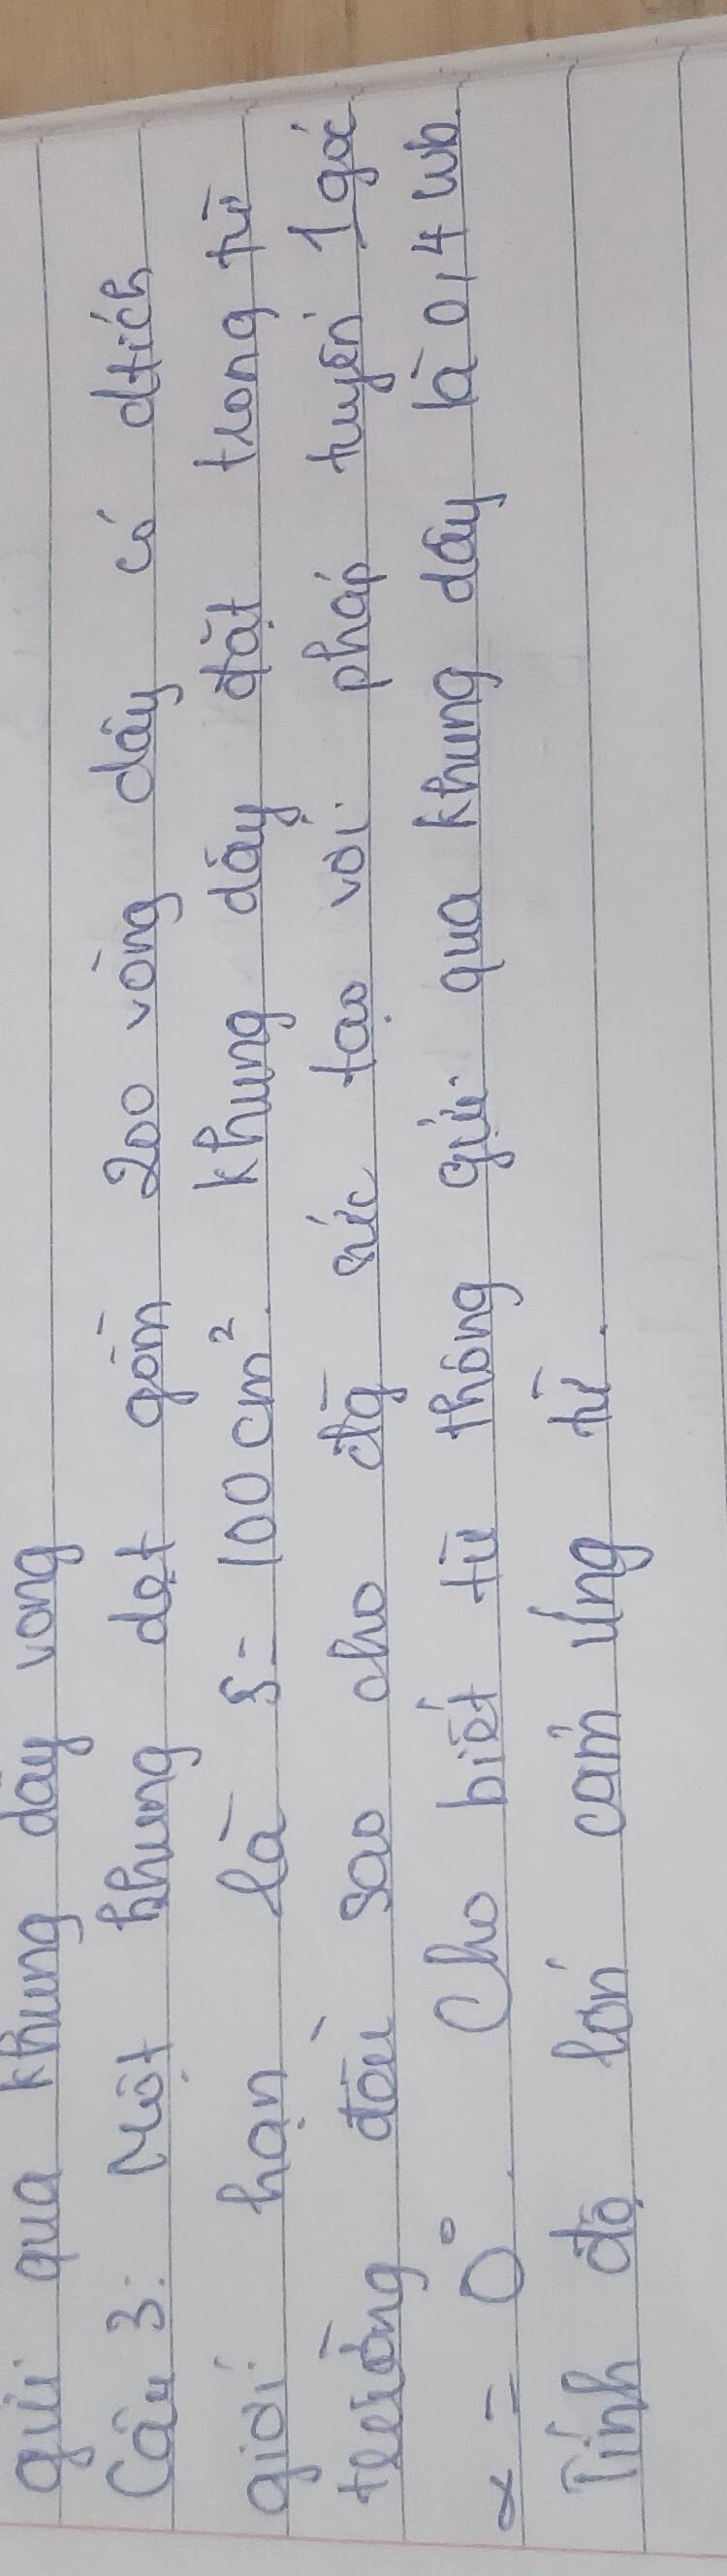 gửi qua khung dây vong
Câu 3: Một khung dẹt gồm 200 vòng dây có dtích
giới hạn là S = 100 cm². khung dây đặt trong từ
trường đều sao cho đg sức tạo với pháp tuyến 1 góc
α = 0°. Cho biết từ thông gửi qua khung dây là 0,4 Wb.
Tính độ lớn cảm ứng từ.